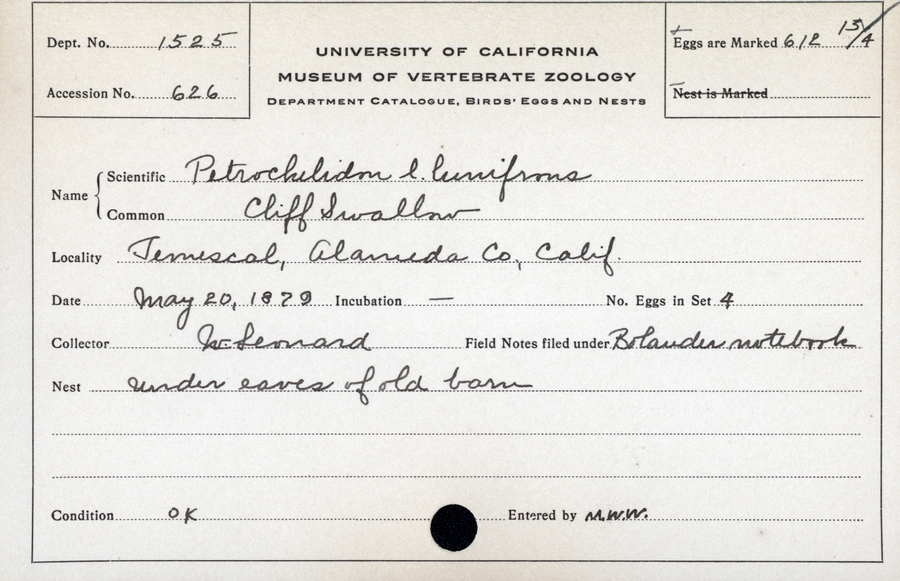 Dept. No. 1525
Accession No. 626
UNIVERSITY OF CALIFORNIA
MUSEUM OF VERTEBRATE ZOOLOGY
DEPARTMENT CATALOGUE, BIRDS' EGGS AND NESTS
Eggs are Marked 612 15/4
Nest is Marked
Name
Scientific Petrochelidon l. lunifrons
Common Cliff Swallow
Locality Temescal, Alameda Co, Calif.
Date May 20, 1879 Incubation — No. Eggs in Set 4
Collector Leonard Field Notes filed under Bolander notebook
Nest under eaves of old barn
Condition OK Entered by M.W.W.